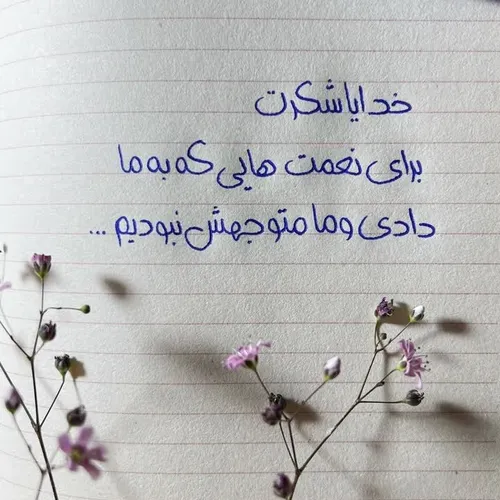 خدایا شکرت
برای نعمت هایی که به ما
دادی و ما متوجهش نبودیم ...